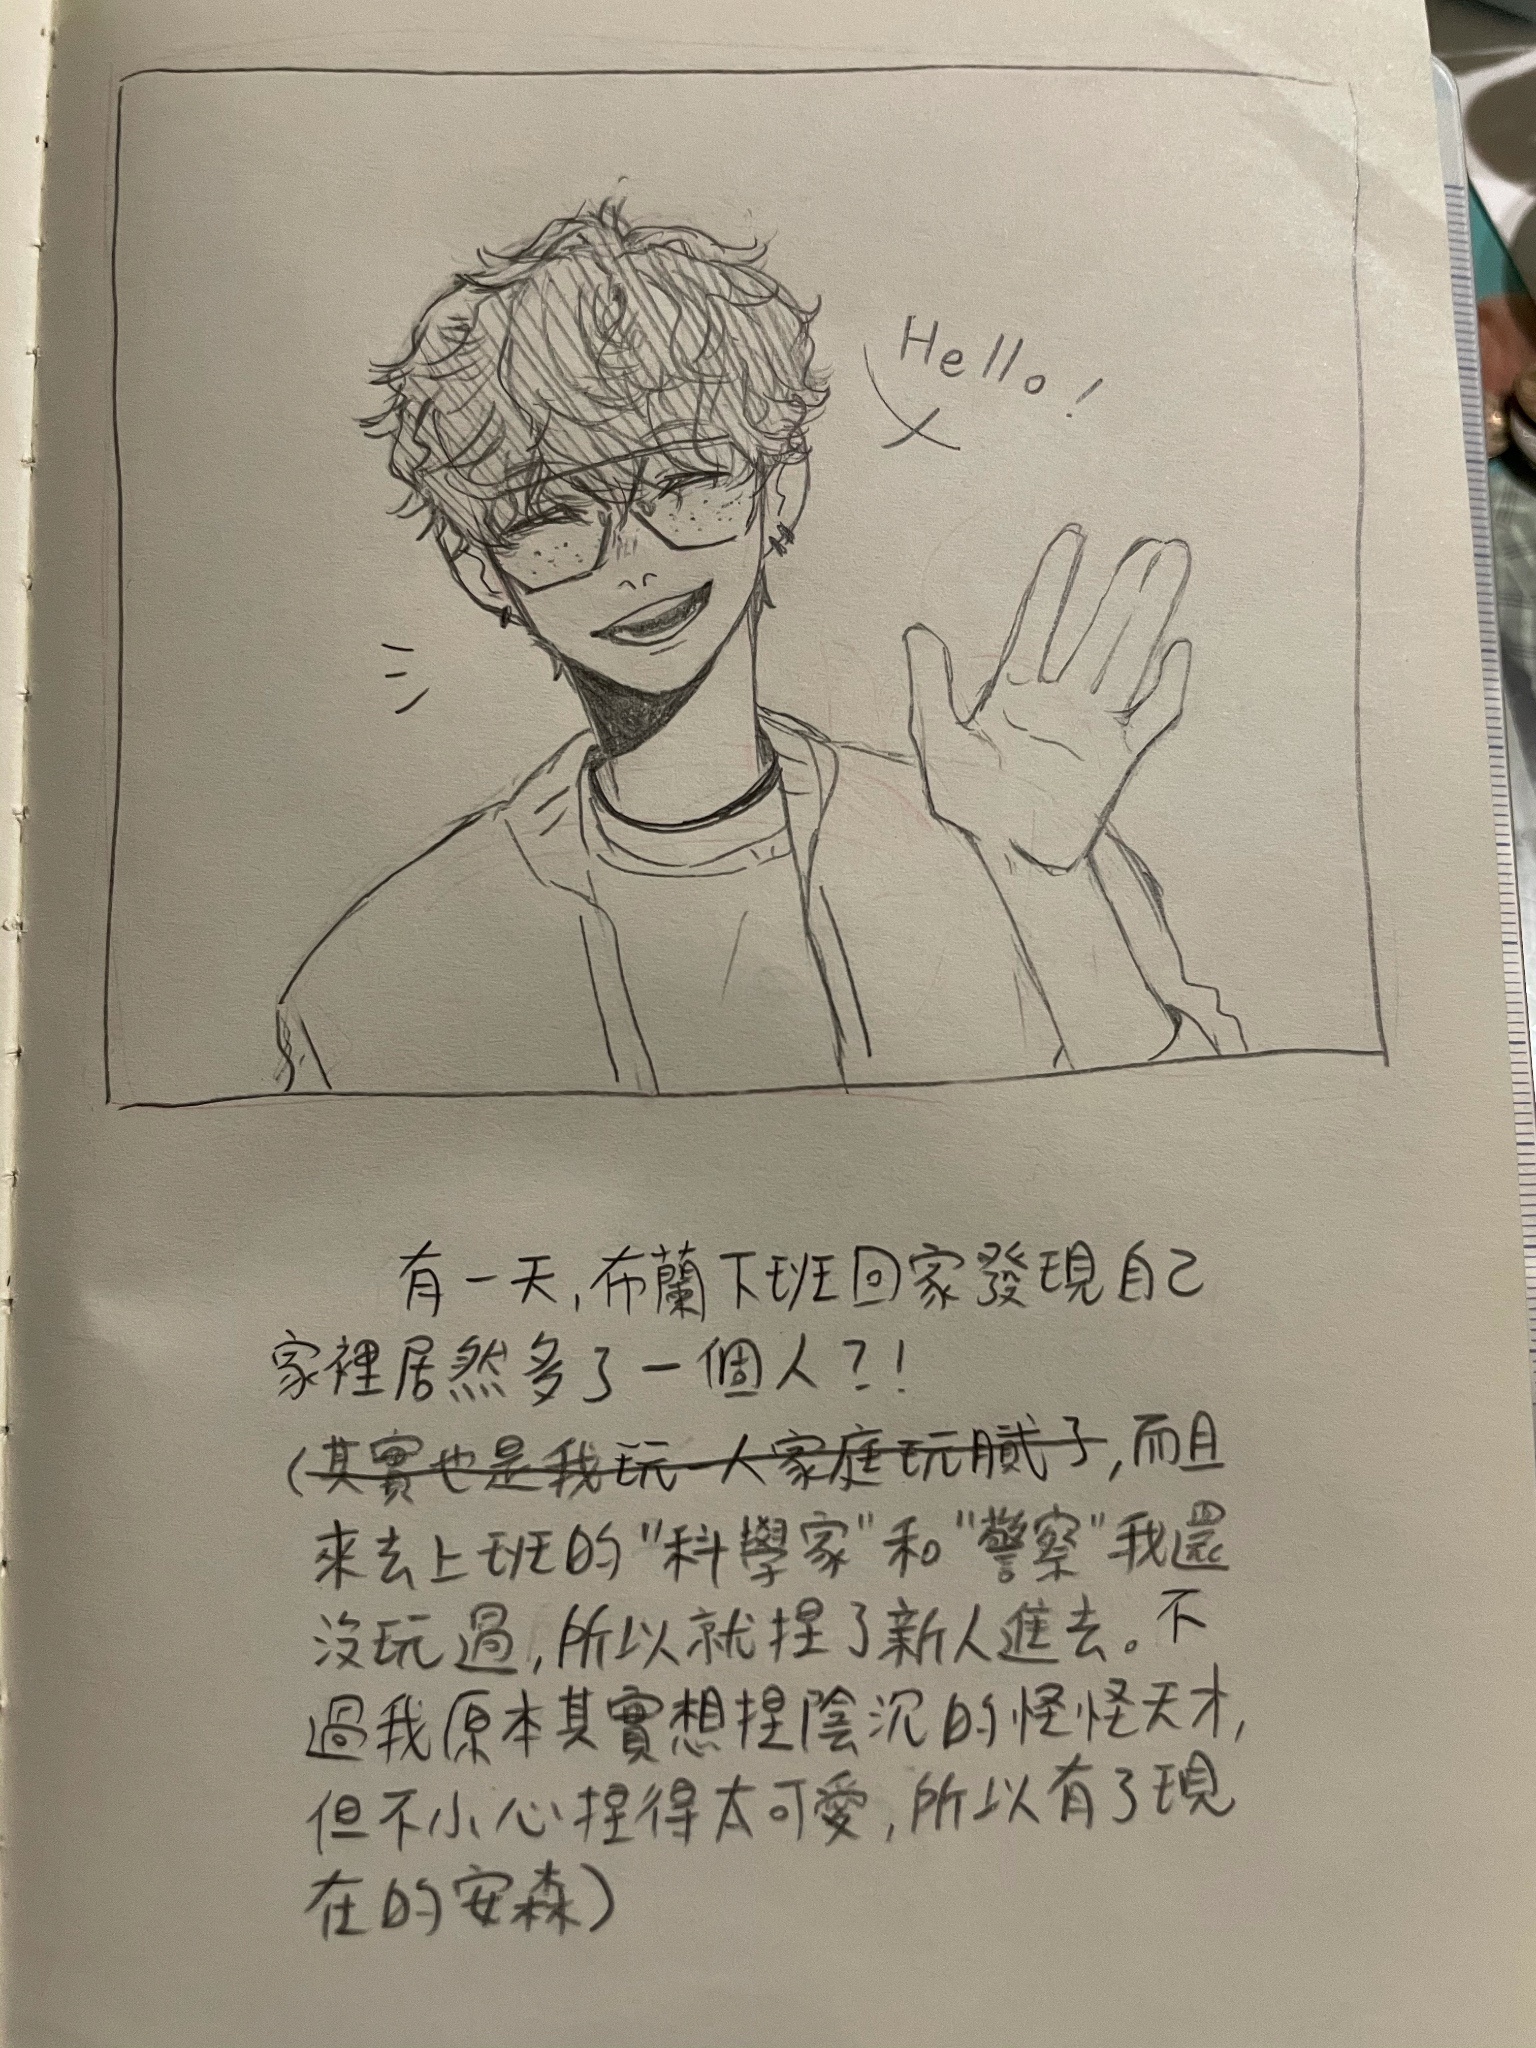 Hello!
有一天,布蘭下班回家發現自己
家裡居然多了一個人?!
(其實也是我玩一人家庭玩膩了,而且
來去上班的"科學家"和"警察"我還
沒玩過,所以就捏了新人進去。不
過我原本其實想捏陰沉的怪怪天才,
但不小心捏得太可愛,所以有了現
在的安森)